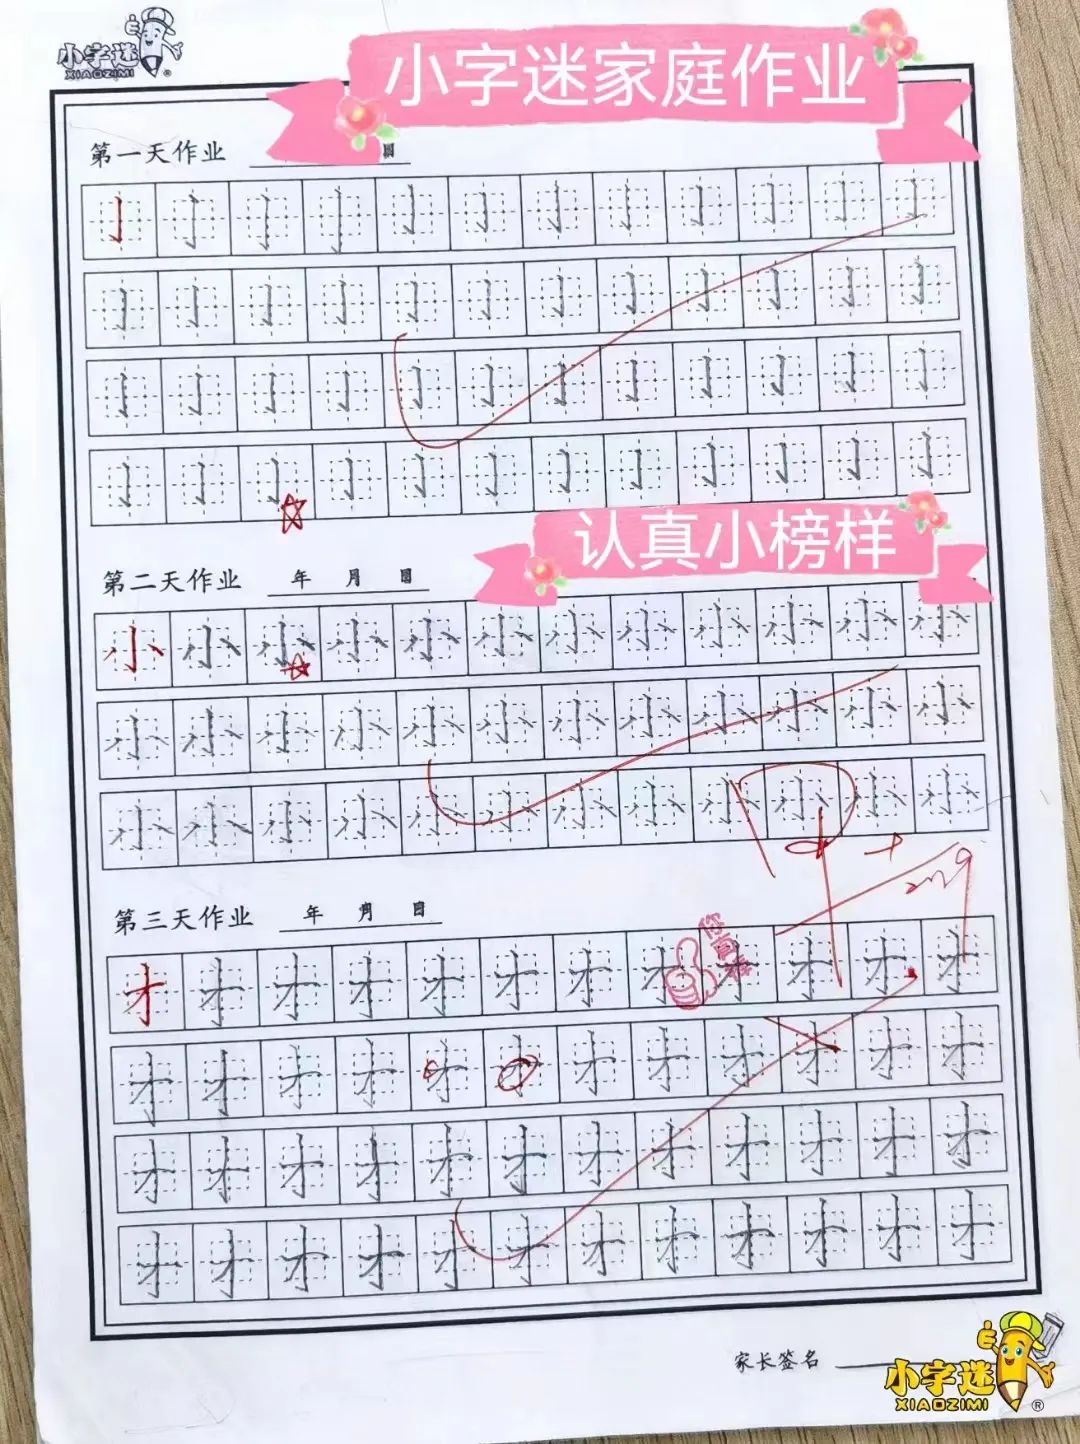 小字迷
XIAOZIMI®
小字迷家庭作业
第一天作业 日
亅 亅 亅 亅 亅 亅 亅 亅 亅 亅 亅 亅
亅 亅 亅 亅 亅 亅 亅 亅 亅 亅 亅 亅
亅 亅 亅 亅 亅 亅 亅 亅 亅 亅 亅 亅
亅 亅 亅 亅 亅 亅 亅 亅 亅 亅 亅 亅
认真小榜样
第二天作业 年 月 日
小 小 小 小 小 小 小 小 小 小 小 小
小 小 小 小 小 小 小 小 小 小 小 小
小 小 小 小 小 小 小 小 小 小 小 小
第三天作业 年 月 日
才 才 才 才 才 才 才 才 才 才 才 才
你真棒
才 才 才 才 才 才 才 才 才 才 才 才
才 才 才 才 才 才 才 才 才 才 才 才
才 才 才 才 才 才 才 才 才 才 才 才
家长签名
小字迷
XIAOZIMI®